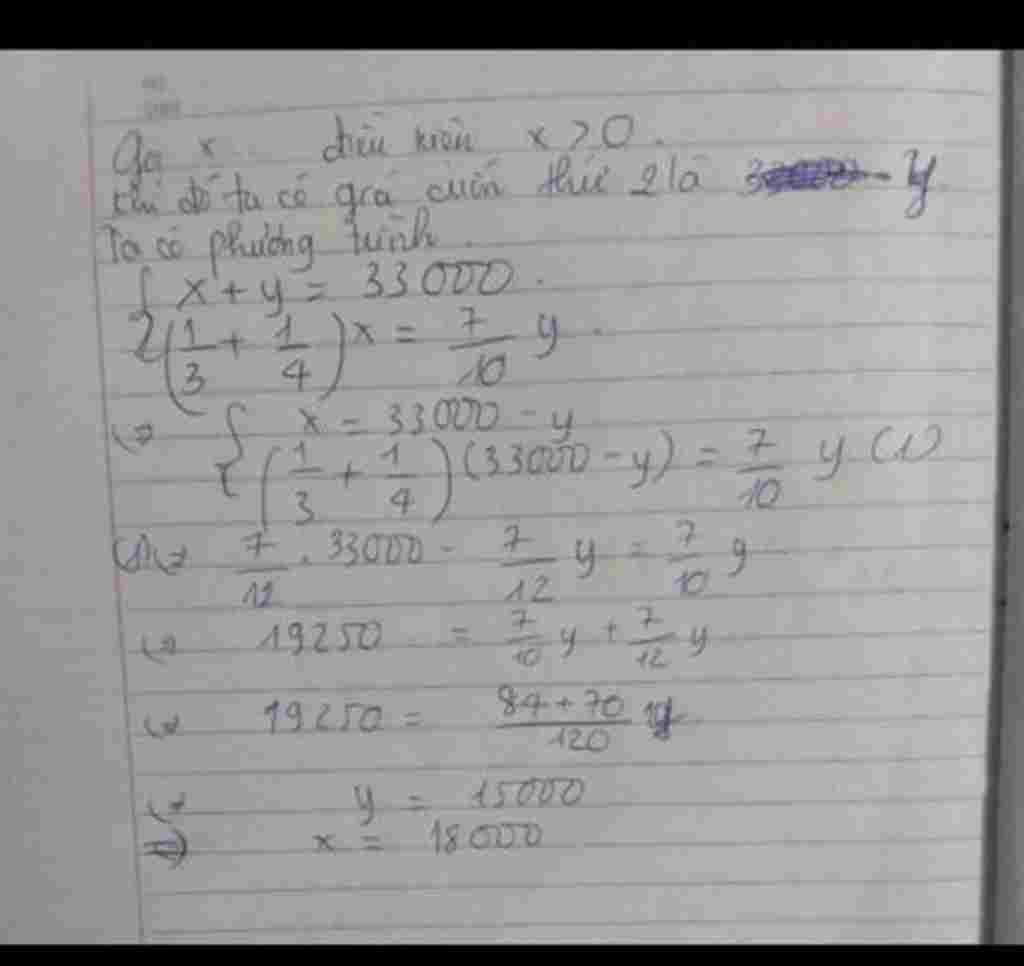 Gọi x điều kiện x > 0.
khi đó ta có giá cuốn thứ 2 là y
Ta có phương trình.
{ x + y = 33000.
(1/3 + 1/4) x = 7/10 y.
<=> { x = 33000 - y
(1/3 + 1/4) (33000 - y) = 7/10 y (1)
(1) <=> 7/12 . 33000 - 7/12 y = 7/10 y
<=> 19250 = 7/10 y + 7/12 y
<=> 19250 = (84 + 70)/120 y
<=> y = 15000
=> x = 18000